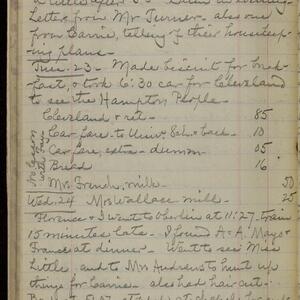 a little after 5:
Letter from Mr Turner - also one
from Carrie, telling of their housekeep-
ing plans -
Tues. 23 - Made biscuit for break-
fast, & took 6:30 car for Cleveland
to see the Hampton People -
Cleveland & ret - 85
Car fare to Univ. Sch. & back - 10
Car fare, extra - 05
Bread 16
Mrs. French, milk - 50
Wed. 24 Mrs Wallace milk - 25
Florence & I went to Oberlin at 11:27, train
15 minutes late - I found A & A Mayo &
Frances at dinner - Went to see Miss
Little, and to Mrs Andrews to hunt up
things for Carrie - also had hair cut -